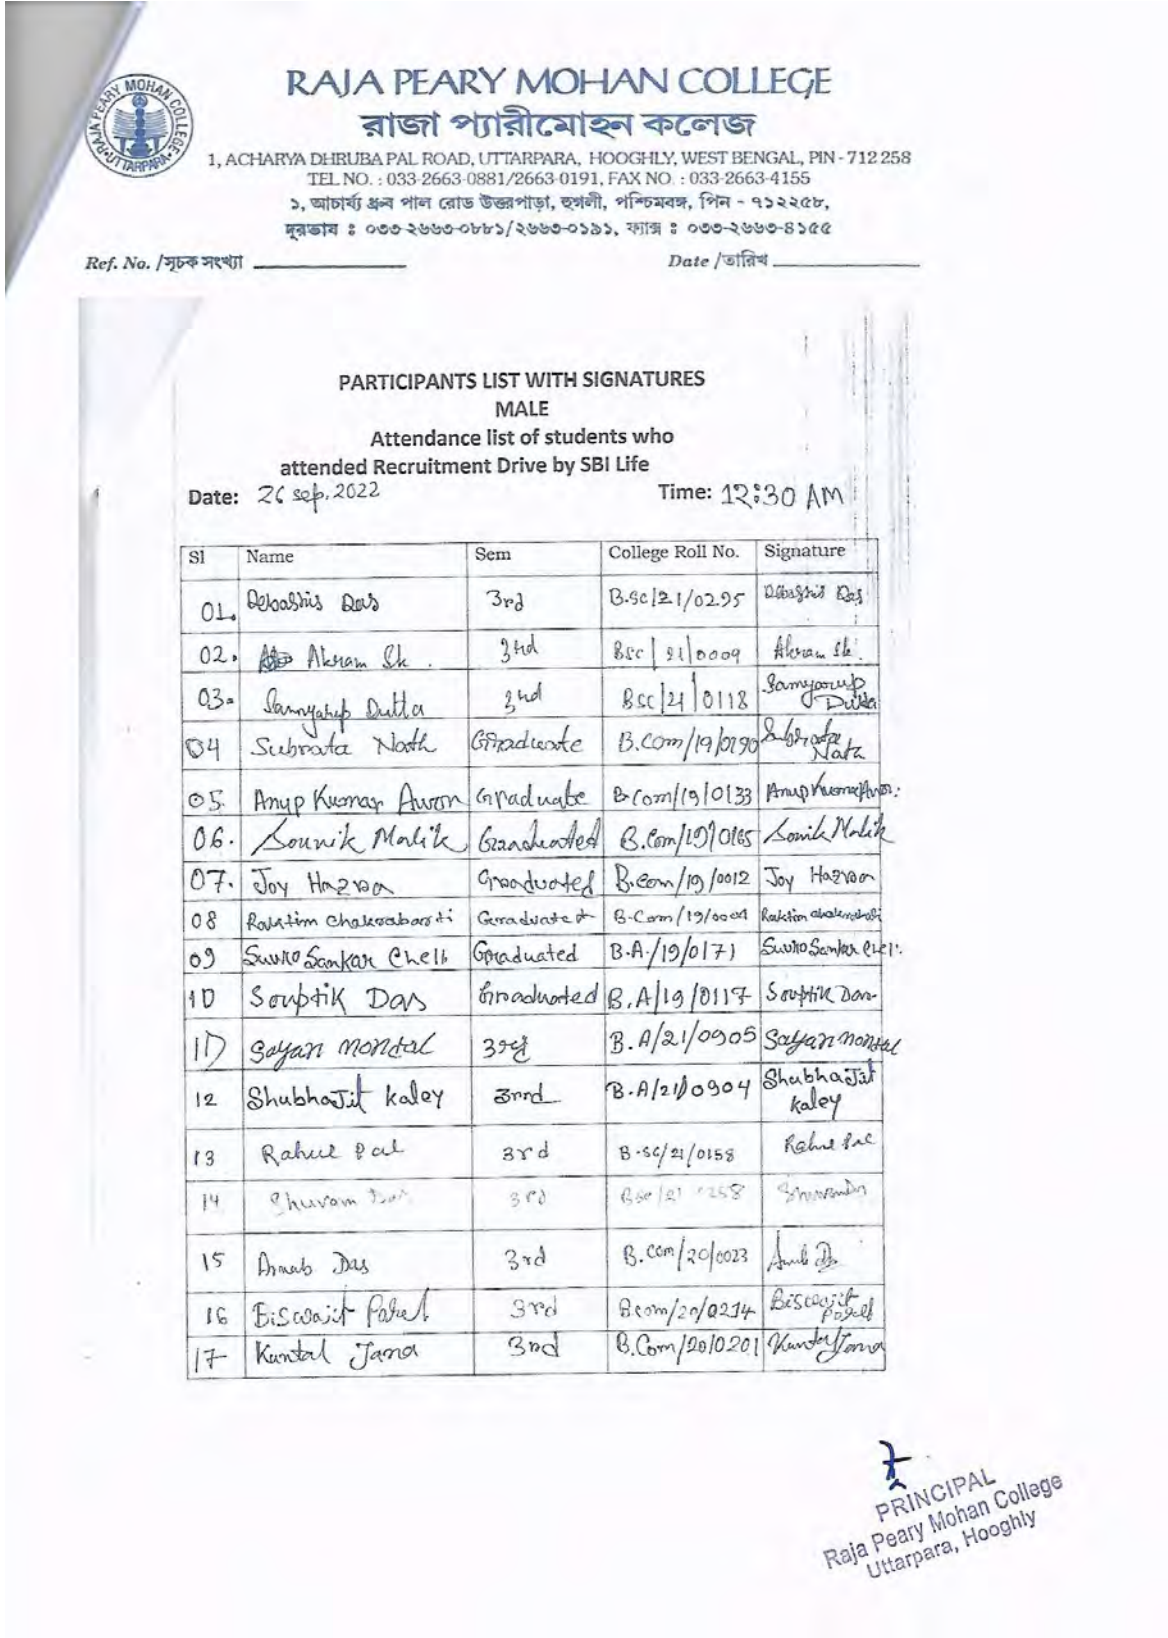 RAJA PEARY MOHAN COLLEGE
রাজা প্যারীমোহন কলেজ
RAJA PEARY MOHAN COLLEGE
UTTARPARA
1, ACHARYA DHRUBA PAL ROAD, UTTARPARA, HOOGHLY, WEST BENGAL, PIN - 712 258
TEL NO. : 033-2663-0881/2663-0191, FAX NO. : 033-2663-4155
১, আচার্য্য ধ্রুব পাল রোড উত্তরপাড়া, হুগলী, পশ্চিমবঙ্গ, পিন - ৭১২২৫৮,
দূরভাষ : ০৩৩-২৬৬৩-০৮৮১/২৬৬৩-০১৯১, ফ্যাক্স : ০৩৩-২৬৬৩-৪১৫৫
Ref. No. /সূচক সংখ্যা Date /তারিখ
PARTICIPANTS LIST WITH SIGNATURES
MALE
Attendance list of students who
attended Recruitment Drive by SBI Life
Date: 26 sep. 2022 Time: 12:30 AM
Sl Name Sem College Roll No. Signature
01. Debashis Das 3rd B.Sc/21/0295 Debashis Das
02. Akram Sk. 3rd BSc/21/0009 Akram Sk.
03. Samyarup Dutta 3rd BSc/21/0118 Samyarup Dutta
04 Subrata Nath Graduate B.Com/19/0190 Subrata Nath
05. Anup Kumar Awon Graduate B.Com/19/0133 Anup Kumar
06. Sounik Malik Graduated B.Com/19/0165 Sounik Malik
07. Joy Hazra Graduated B.com/19/0012 Joy Hazra
08 Raktim Chakrabarti Graduated B-Com/19/0004 Raktim Chakrabarti
09 Suvro Sankar Chell Graduated B.A./19/0171 Suvro Sankar Chell.
10 Souptik Das Graduated B.A/19/0117 Souptik Das
11 Sayan Mondal 3rd B.A/21/0905 Sayan Mondal
12 ShubhaJit Kaley 3rd B.A/21/0904 ShubhaJit Kaley
13 Rahul Pal 3rd B.Sc/21/0158 Rahul Pal
14 Shuvam 3rd BSc/21 0258
15 Arnab Das 3rd B.Com/20/0023
16 Biswajit Patel 3rd Bcom/20/0214 Biswajit Patel
17 Kuntal Jana 3rd B.Com/20/0201 Kuntal Jana
PRINCIPAL
Raja Peary Mohan College
Uttarpara, Hooghly